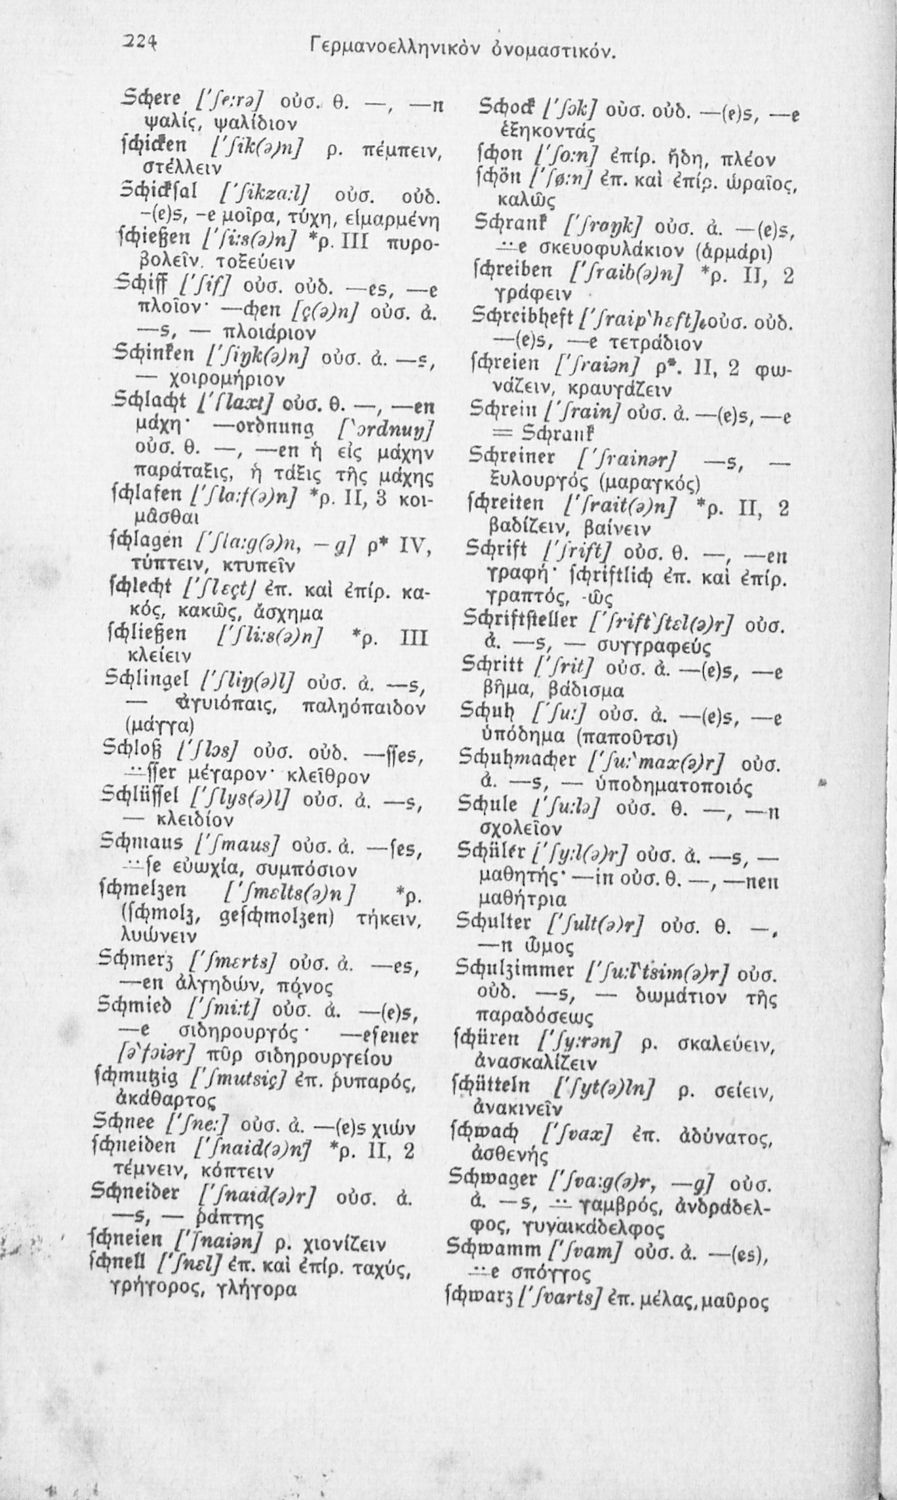 224
Γερμανοελληνικὸν ὀνομαστικόν.
Schere ['ʃe:rə] οὐσ. θ. —, —n
ψαλίς, ψαλίδιον
schicken ['ʃik(ə)n] ρ. πέμπειν,
στέλλειν
Schicksal ['ʃikza:l] οὐσ. οὐδ.
-(e)s, -e μοῖρα, τύχη, εἱμαρμένη
schießen ['ʃi:s(ə)n] *ρ. III πυρο-
βολεῖν, τοξεύειν
Schiff ['ʃif] οὐσ. οὐδ. —es, —e
πλοῖον· —chen [ç(ə)n] οὐσ. ἀ.
—s, — πλοιάριον
Schinken ['ʃiŋk(ə)n] οὐσ. ἀ. —s,
— χοιρομήριον
Schlacht ['ʃlaxt] οὐσ. θ. —, —en
μάχη· —ordnung [‵ɔrdnuŋ]
οὐσ. θ. —, —en ἡ εἰς μάχην
παράταξις, ἡ τάξις τῆς μάχης
schlafen ['ʃla:f(ə)n] *ρ. II, 3 κοι-
μᾶσθαι
schlagen ['ʃla:g(ə)n, —g] ρ* IV,
τύπτειν, κτυπεῖν
schlecht ['ʃlεçt] ἐπ. καὶ ἐπίρ. κα-
κός, κακῶς, ἄσχημα
schließen ['ʃli:s(ə)n] *ρ. III
κλείειν
Schlingel ['ʃliŋ(ə)l] οὐσ. ἀ. —s,
— ἀγυιόπαις, παληόπαιδον
(μάγγα)
Schloß ['ʃlɔs] οὐσ. οὐδ. —sses,
—̈sser μέγαρον· κλεῖθρον
Schlüssel ['ʃlys(ə)l] οὐσ. ἀ. —s,
— κλειδίον
Schmaus ['ʃmaus] οὐσ. ἀ. —ses,
—̈se εὐωχία, συμπόσιον
schmelzen ['ʃmεlts(ə)n] *ρ.
(schmolz, geschmolzen) τήκειν,
λυώνειν
Schmerz ['ʃmεrts] οὐσ. ἀ. —es,
—en ἀλγηδών, πόνος
Schmied ['ʃmi:t] οὐσ. ἀ. —(e)s,
—e σιδηρουργός· —esfeuer
[ə‵fɔiər] πῦρ σιδηρουργείου
schmutzig ['ʃmutsiç] ἐπ. ῥυπαρός,
ἀκάθαρτος
Schnee ['ʃne:] οὐσ. ἀ. —(e)s χιών
schneiden ['ʃnaid(ə)n] *ρ. II, 2
τέμνειν, κόπτειν
Schneider ['ʃnaid(ə)r] οὐσ. ἀ.
—s, — ῥάπτης
schneien ['ʃnaiən] ρ. χιονίζειν
schnell ['ʃnεl] ἐπ. καὶ ἐπίρ. ταχύς,
γρήγορος, γλήγορα
Schock ['ʃɔk] οὐσ. οὐδ. —(e)s, —e
ἑξηκοντάς
schon ['ʃo:n] ἐπίρ. ἤδη, πλέον
schön ['ʃø:n] ἐπ. καὶ ἐπίρ. ὡραῖος,
καλῶς
Schrank ['ʃraŋk] οὐσ. ἀ. —(e)s,
—̈e σκευοφυλάκιον (ἁρμάρι)
schreiben ['ʃraib(ə)n] *ρ. II, 2
γράφειν
Schreibheft ['ʃraip‵hεft] οὐσ. οὐδ.
—(e)s, —e τετράδιον
schreien ['ʃraiən] ρ*. II, 2 φω-
νάζειν, κραυγάζειν
Schrein ['ʃrain] οὐσ. ἀ. —(e)s, —e
= Schrank
Schreiner ['ʃrainər] —s, —
ξυλουργός (μαραγκός)
schreiten ['ʃrait(ə)n] *ρ. II, 2
βαδίζειν, βαίνειν
Schrift ['ʃrift] οὐσ. θ. —, —en
γραφή· schriftlich ἐπ. καὶ ἐπίρ.
γραπτός, -ῶς
Schriftsteller ['ʃrift‵ʃtεl(ə)r] οὐσ.
ἀ. —s, — συγγραφεύς
Schritt ['ʃrit] οὐσ. ἀ. —(e)s, —e
βῆμα, βάδισμα
Schuh ['ʃu:] οὐσ. ἀ. —(e)s, —e
ὑπόδημα (παποῦτσι)
Schuhmacher ['ʃu:‵max(ə)r] οὐσ.
ἀ. —s, — ὑποδηματοποιός
Schule ['ʃu:lə] οὐσ. θ. —, —n
σχολεῖον
Schüler ['ʃy:l(ə)r] οὐσ. ἀ. —s, —
μαθητής· —in οὐσ. θ. —, —nen
μαθήτρια
Schulter ['ʃult(ə)r] οὐσ. θ. —,
—n ὦμος
Schulzimmer ['ʃu:l‵tsim(ə)r] οὐσ.
οὐδ. —s, — δωμάτιον τῆς
παραδόσεως
schüren ['ʃy:rən] ρ. σκαλεύειν,
ἀνασκαλίζειν
schütteln ['ʃyt(ə)ln] ρ. σείειν,
ἀνακινεῖν
schwach ['ʃvax] ἐπ. ἀδύνατος,
ἀσθενής
Schwager ['ʃva:g(ə)r, —g] οὐσ.
ἀ. —s, —̈ γαμβρός, ἀνδράδελ-
φος, γυναικάδελφος
Schwamm ['ʃvam] οὐσ. ἀ. —(es),
—̈e σπόγγος
schwarz ['ʃvarts] ἐπ. μέλας, μαῦρος